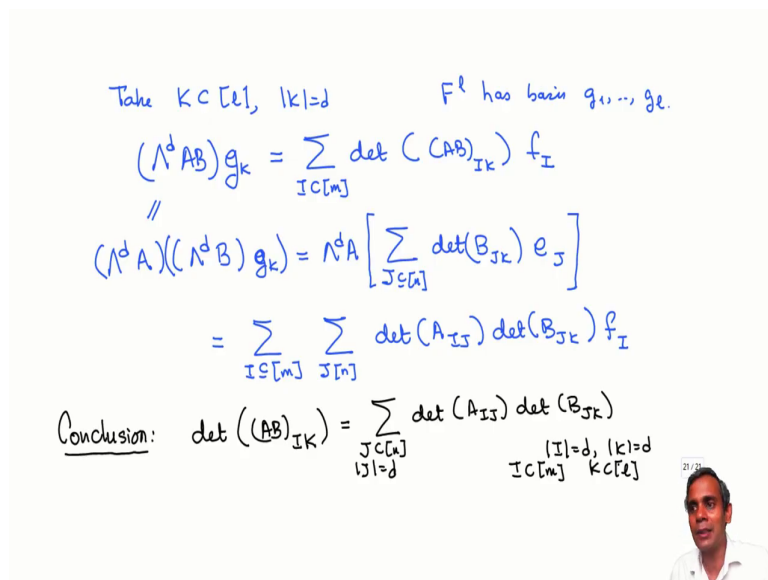 Take K⊂[l], |K|=d F^l has basis g₁,..,gₗ.
(Λ^d AB) g_K = ∑_{I⊂[m]} det ((AB)_{IK}) f_I
//
(Λ^d A)((Λ^d B) g_K) = Λ^d A [∑_{J⊆[n]} det(B_{JK}) e_J]
= ∑_{I⊆[m]} ∑_{J[n]} det(A_{IJ}) det(B_{JK}) f_I
Conclusion: det ((AB)_{IK}) = ∑_{J⊂[n] |J|=d} det (A_{IJ}) det (B_{JK})
|I|=d, |K|=d
I⊂[m] K⊂[l]
21 / 21